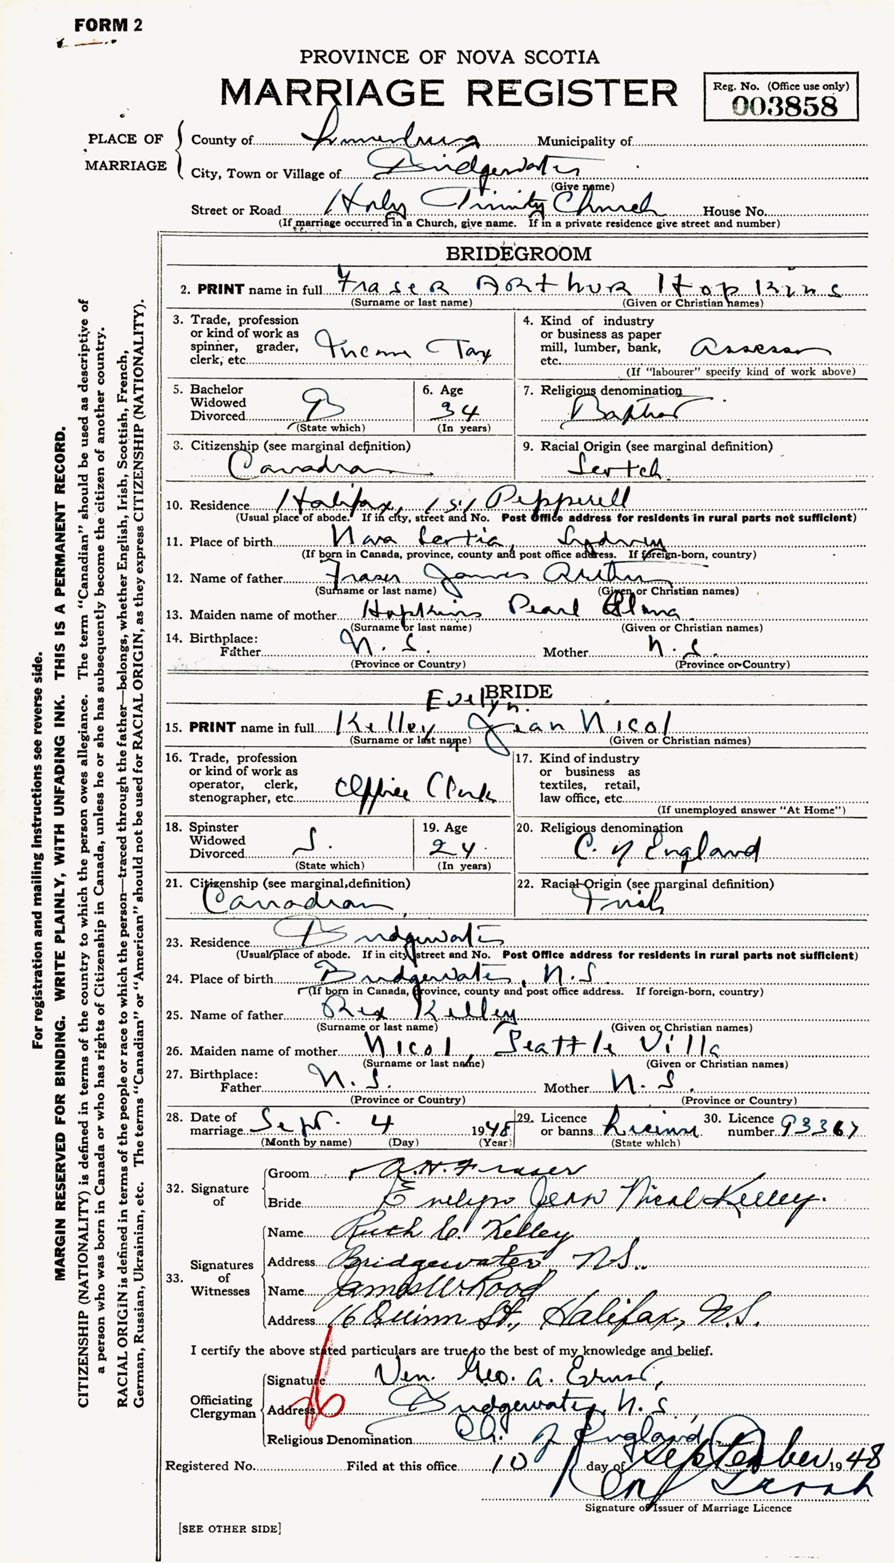 FORM 2
PROVINCE OF NOVA SCOTIA
MARRIAGE REGISTER
Reg. No. (Office use only)
003858
PLACE OF MARRIAGE
County of Lunenburg Municipality of
City, Town or Village of Bridgewater
(Give name)
Street or Road Holy Trinity Church House No.
(If marriage occurred in a Church, give name. If in a private residence give street and number)
BRIDEGROOM
2. PRINT name in full Fraser Arthur Hopkins
(Surname or last name) (Given or Christian names)
3. Trade, profession or kind of work as spinner, grader, clerk, etc. Income Tax
4. Kind of industry or business as paper mill, lumber, bank, etc. Assessor
(If "labourer" specify kind of work above)
5. Bachelor Widowed Divorced B
(State which)
6. Age 34
(In years)
7. Religious denomination Baptist
8. Citizenship (see marginal definition) Canadian
9. Racial Origin (see marginal definition) Scotch
10. Residence Halifax, 151 Pepperell
(Usual place of abode. If in city, street and No. Post Office address for residents in rural parts not sufficient)
11. Place of birth Nova Scotia, Sydney
(If born in Canada, province, county and post office address. If foreign-born, country)
12. Name of father Fraser James Arthur
(Surname or last name) (Given or Christian names)
13. Maiden name of mother Hopkins Pearl Alma
(Surname or last name) (Given or Christian names)
14. Birthplace: Father N. S. Mother N. S.
(Province or Country) (Province or Country)
BRIDE
Evelyn
15. PRINT name in full Kelley Jean Nicol
(Surname or last name) (Given or Christian names)
16. Trade, profession or kind of work as operator, clerk, stenographer, etc. Office Clerk
17. Kind of industry or business as textiles, retail, law office, etc.
(If unemployed answer "At Home")
18. Spinster Widowed Divorced S.
(State which)
19. Age 24
(In years)
20. Religious denomination C. of England
21. Citizenship (see marginal definition) Canadian
22. Racial Origin (see marginal definition) Irish
23. Residence Bridgewater
(Usual place of abode. If in city street and No. Post Office address for residents in rural parts not sufficient)
24. Place of birth Bridgewater, N.S.
(If born in Canada, province, county and post office address. If foreign-born, country)
25. Name of father Rex Kelley
(Surname or last name) (Given or Christian names)
26. Maiden name of mother Nicol, Seattle Villa
(Surname or last name) (Given or Christian names)
27. Birthplace: Father N.S. Mother N. S.
(Province or Country) (Province or Country)
28. Date of marriage Sept. 4 1948
(Month by name) (Day) (Year)
29. Licence or banns License
(State which)
30. Licence number 93367
32. Signature of
Groom A. H. Fraser
Bride Evelyn Jean Nicol Kelley.
33. Signatures of Witnesses
Name Ruth C. Kelley
Address Bridgewater, N.S.
Name James W. Rood
Address 16 Quinn St., Halifax, N.S.
I certify the above stated particulars are true to the best of my knowledge and belief.
Officiating Clergyman
Signature Ven. Geo. A. Ernst,
Address Bridgewater, N.S.
Religious Denomination Ch. of England
Registered No. Filed at this office 10 day of September 1948
Signature of Issuer of Marriage Licence
[SEE OTHER SIDE]
For registration and mailing instructions see reverse side.
MARGIN RESERVED FOR BINDING. WRITE PLAINLY, WITH UNFADING INK. THIS IS A PERMANENT RECORD.
CITIZENSHIP (NATIONALITY) is defined in terms of the country to which the person owes allegiance. The term "Canadian" should be used as descriptive of
a person who was born in Canada or who has rights of Citizenship in Canada, unless he or she has subsequently become the citizen of another country.
RACIAL ORIGIN is defined in terms of the people or race to which the person—traced through the father—belongs, whether English, Irish, Scottish, French,
German, Russian, Ukrainian, etc. The terms "Canadian" or "American" should not be used for RACIAL ORIGIN, as they express CITIZENSHIP (NATIONALITY).